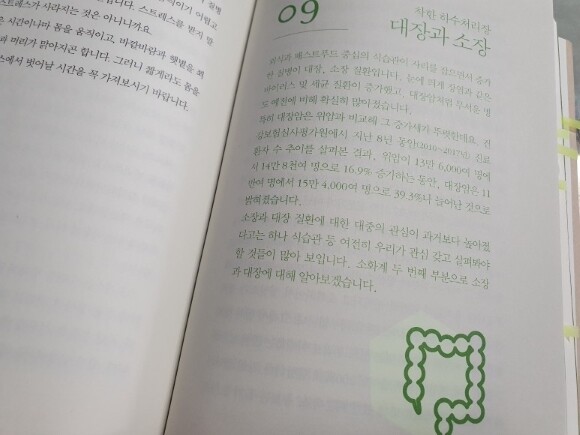 스트레스가 사라지는 것은 아니까요.
시간이나마 몸을 움직이고, 바깥바람과 햇볕을 쬐
과 머리가 맑아지곤 합니다. 그러니 짧게라도 몸을
스에서 벗어날 시간을 꼭 가져보시기 바랍니다.
09
착한 하수처리장
대장과 소장
외식과 패스트푸드 중심의 식습관이 자리를 잡으면서 증가
한 질병이 대장, 소장 질환입니다. 눈에 띄게 장염과 같은
바이러스 및 세균 질환이 증가했고, 대장암처럼 무서운 병
도 예전에 비해 확실히 많아졌습니다.
특히 대장암은 위암과 비교해 그 증가세가 뚜렷한데요. 건
강보험심사평가원에서 지난 8년 동안(2010~2017년) 진료
환자 수 추이를 살펴본 결과, 위암이 13만 6,000여 명에
서 14만 8천여 명으로 16.9% 증가하는 동안, 대장암은 11
만여 명에서 15만 4,000여 명으로 39.3%나 늘어난 것으로
밝혀졌습니다.
소장과 대장 질환에 대한 대중의 관심이 과거보다 높아졌
다고는 하나 식습관 등 여전히 우리가 관심 갖고 살펴봐야
할 것들이 많아 보입니다. 소화계 두 번째 부분으로 소장
과 대장에 대해 알아보겠습니다.